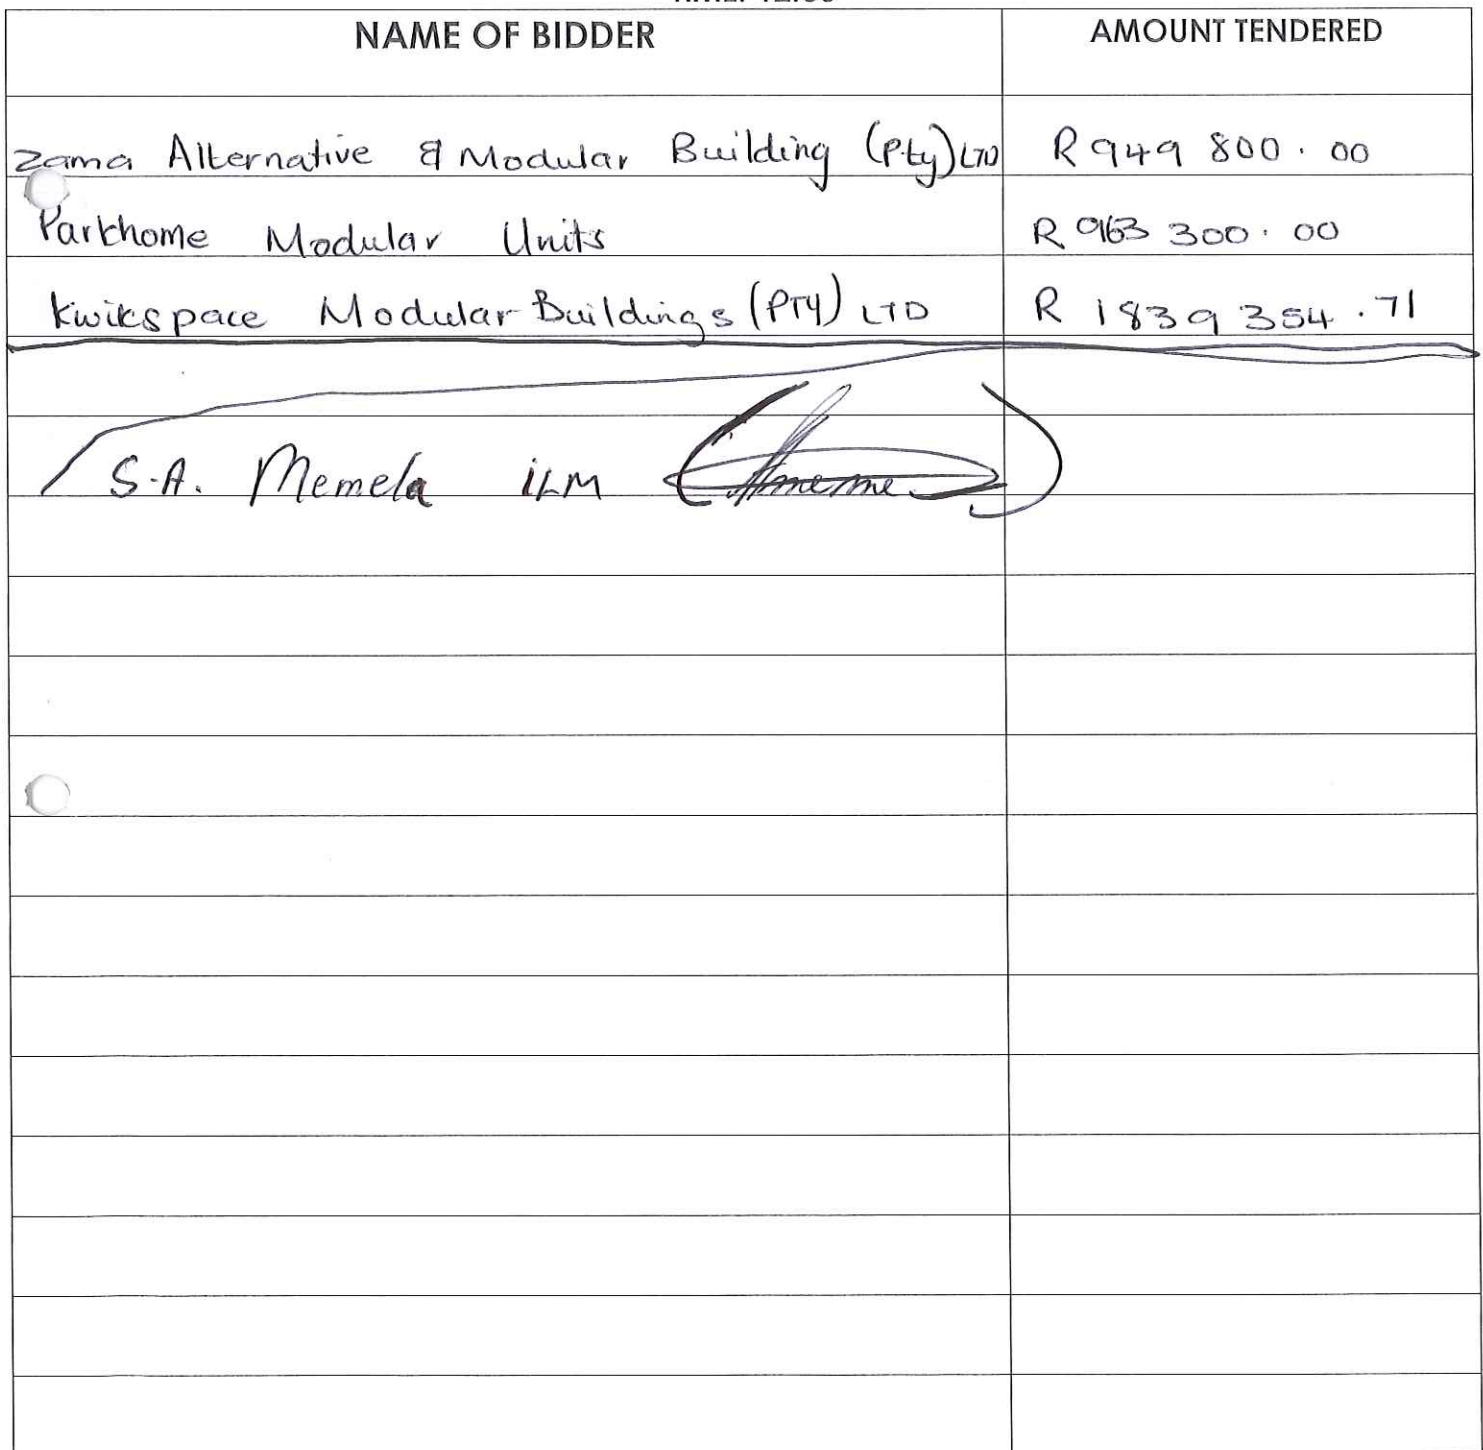 NAME OF BIDDER AMOUNT TENDERED
Zama Alternative & Modular Building (Pty) LTD R 949 800.00
Parkhome Modular Units R 963 300.00
Kwikspace Modular Buildings (PTY) LTD R 1839 354.71
S.A. Memela ILM